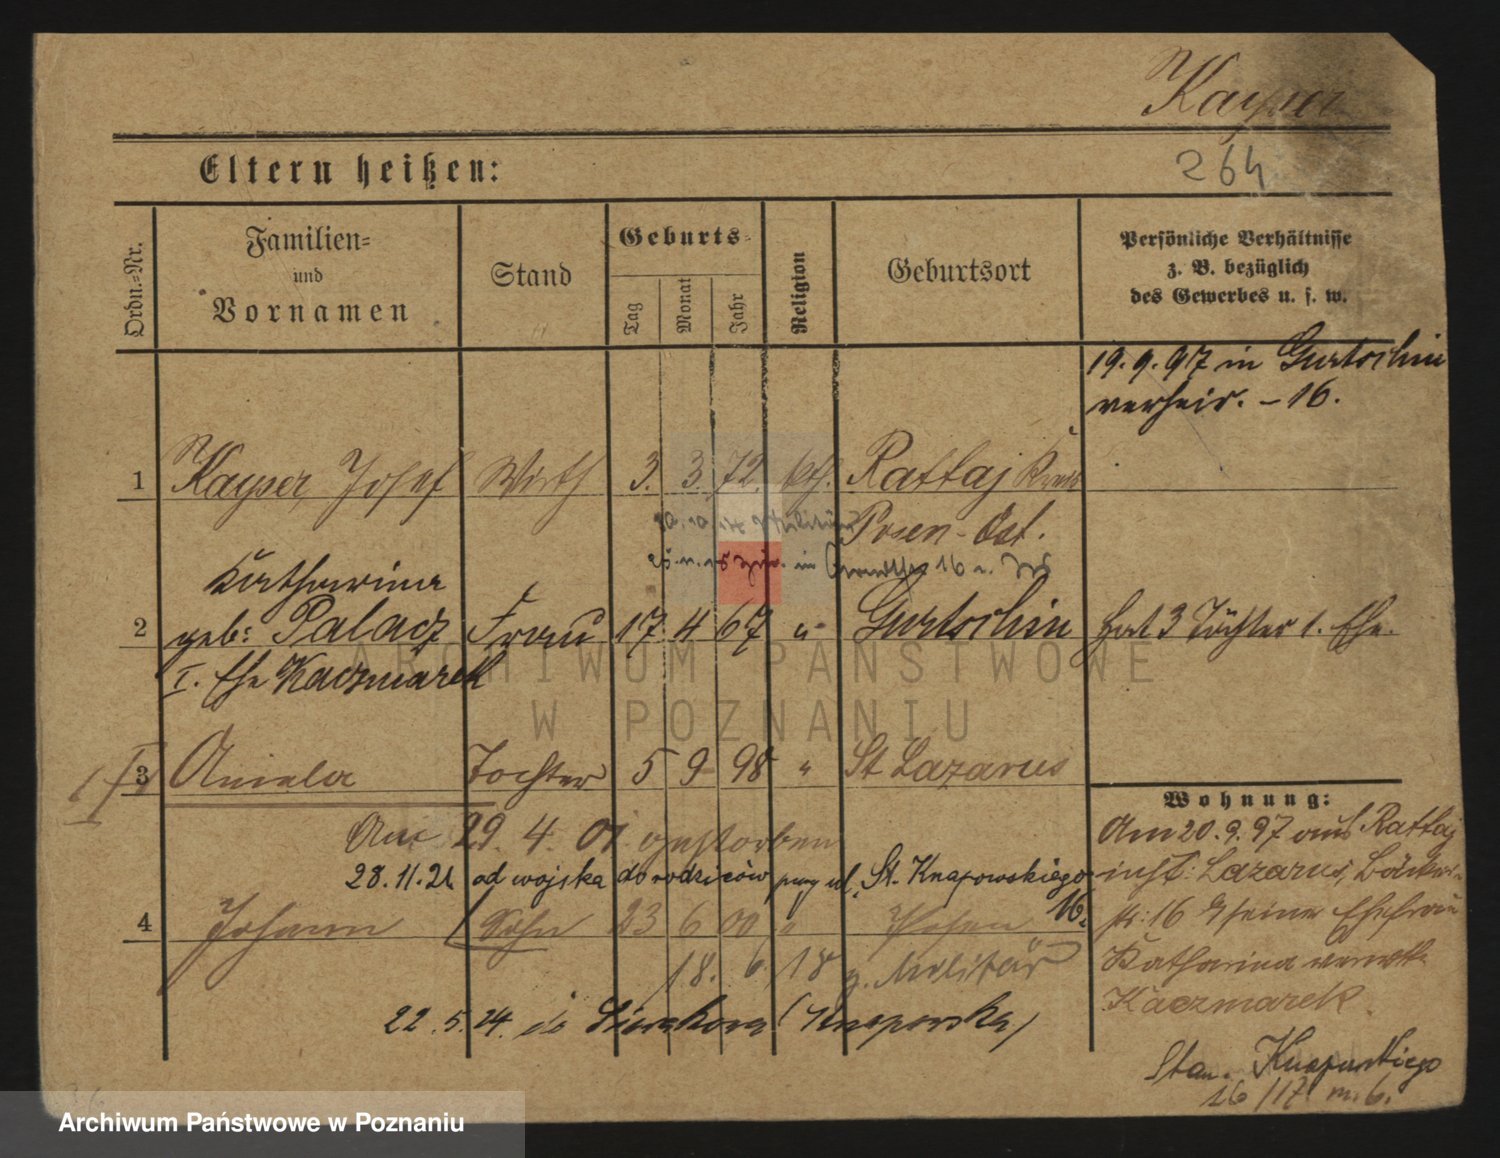 Kayser
264
Eltern heißen:
Ordn.=Nr.
Familien=
und
Vornamen
Stand
Geburts=
Tag
Monat
Jahr
Religion
Geburtsort
Persönliche Verhältnisse
z. B. bezüglich
des Gewerbes u. s. w.
19. 9. 97 in Gurtschin
verheir. – 16.
1 Kayser, Josef Wirth 3. 3. 72. kth. Rattaj Kreis
Posen-Ost.
in 16
Katharina
2 geb: Palacz Frau 17 4 67 " Gurtschin Hat 3 Töchter 1. Ehe.
I. Ehe Kaczmarek
3 Aniela Tochter 5 9 98 " St Lazarus
Am 29. 4. 01. gestorben
28.11.21 od wojska do rodziców przy ul. St. Knapowskiego
16.
4 Johann Sohn 23 6 00 " Posen
18. 6. 18 z. Militär
22. 5. 24. do
Wohnung:
Am 20. 9. 97 aus Rattaj
in St. Lazarus,
str: 16 seiner Ehefrau
Katharina verw.
Kaczmarek
Stan. Knapowskiego
16/17 m. 6.
ARCHIWUM PAŃSTWOWE
W POZNANIU
Archiwum Państwowe w Poznaniu